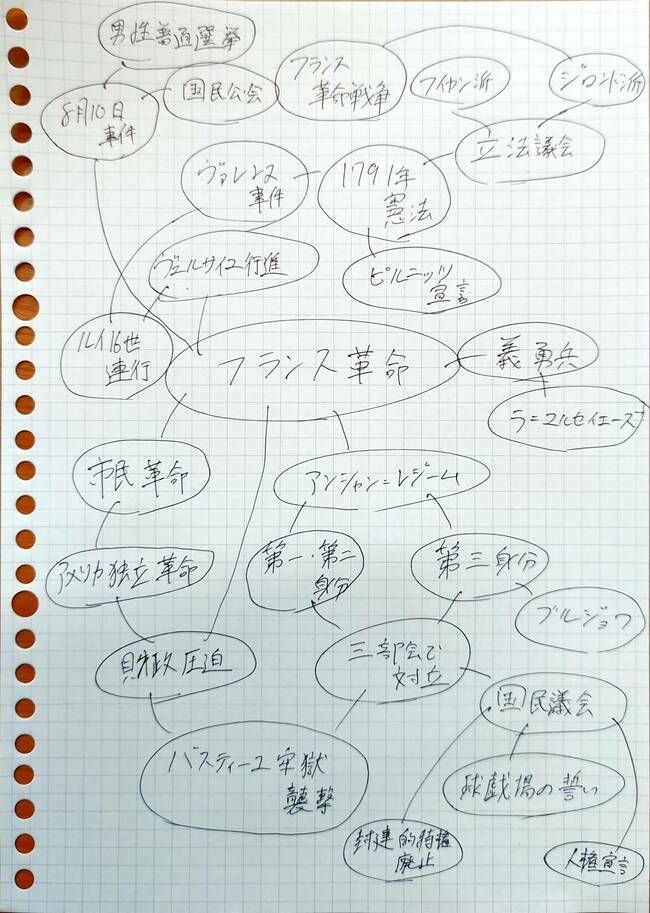 男性普通選挙
8月10日
事件
国民公会
フランス
革命戦争
フイヤン派
ジロンド派
立法議会
ヴァレンヌ
事件
1791年
憲法
ヴェルサイユ行進
ピルニッツ
宣言
ルイ16世
連行
フランス革命
義勇兵
ラ=マルセイエーズ
市民革命
アンシャン=レジーム
アメリカ独立革命
第一・第二
身分
第三身分
ブルジョワ
財政圧迫
三部会で
対立
国民議会
バスティーユ牢獄
襲撃
球戯場の誓い
封建的特権
廃止
人権宣言